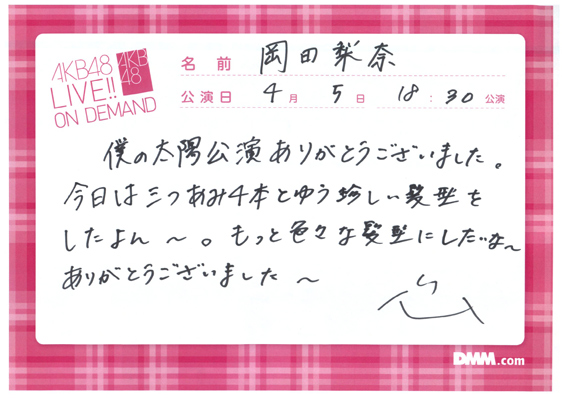 AKB48
LIVE!!
ON DEMAND
AKB
48
名前 岡田梨奈
公演日 4月 5日 18:30公演
僕の太陽公演ありがとうございました。
今日は三つあみ4本とゆう珍しい髪型を
したよん〜。もっと色々な髪型にしたいな〜
ありがとうございました〜
DMM.com